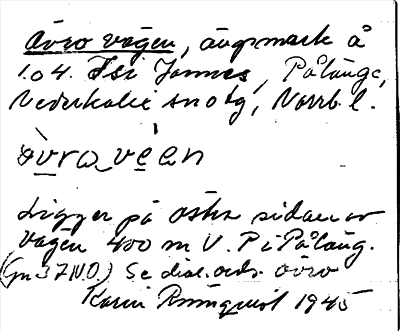 Övre vägen, ängsmark å
1.04. Jannes, Pålänge,
Nederkalix sn o tg, Norrb. l.
òvra vèen
Ligger på östra sidan av
vägen 400 m V. P i Påläng.
(Gn 37 N.O.) Se dial.ord. övre
Karin Rönnqvist 1945